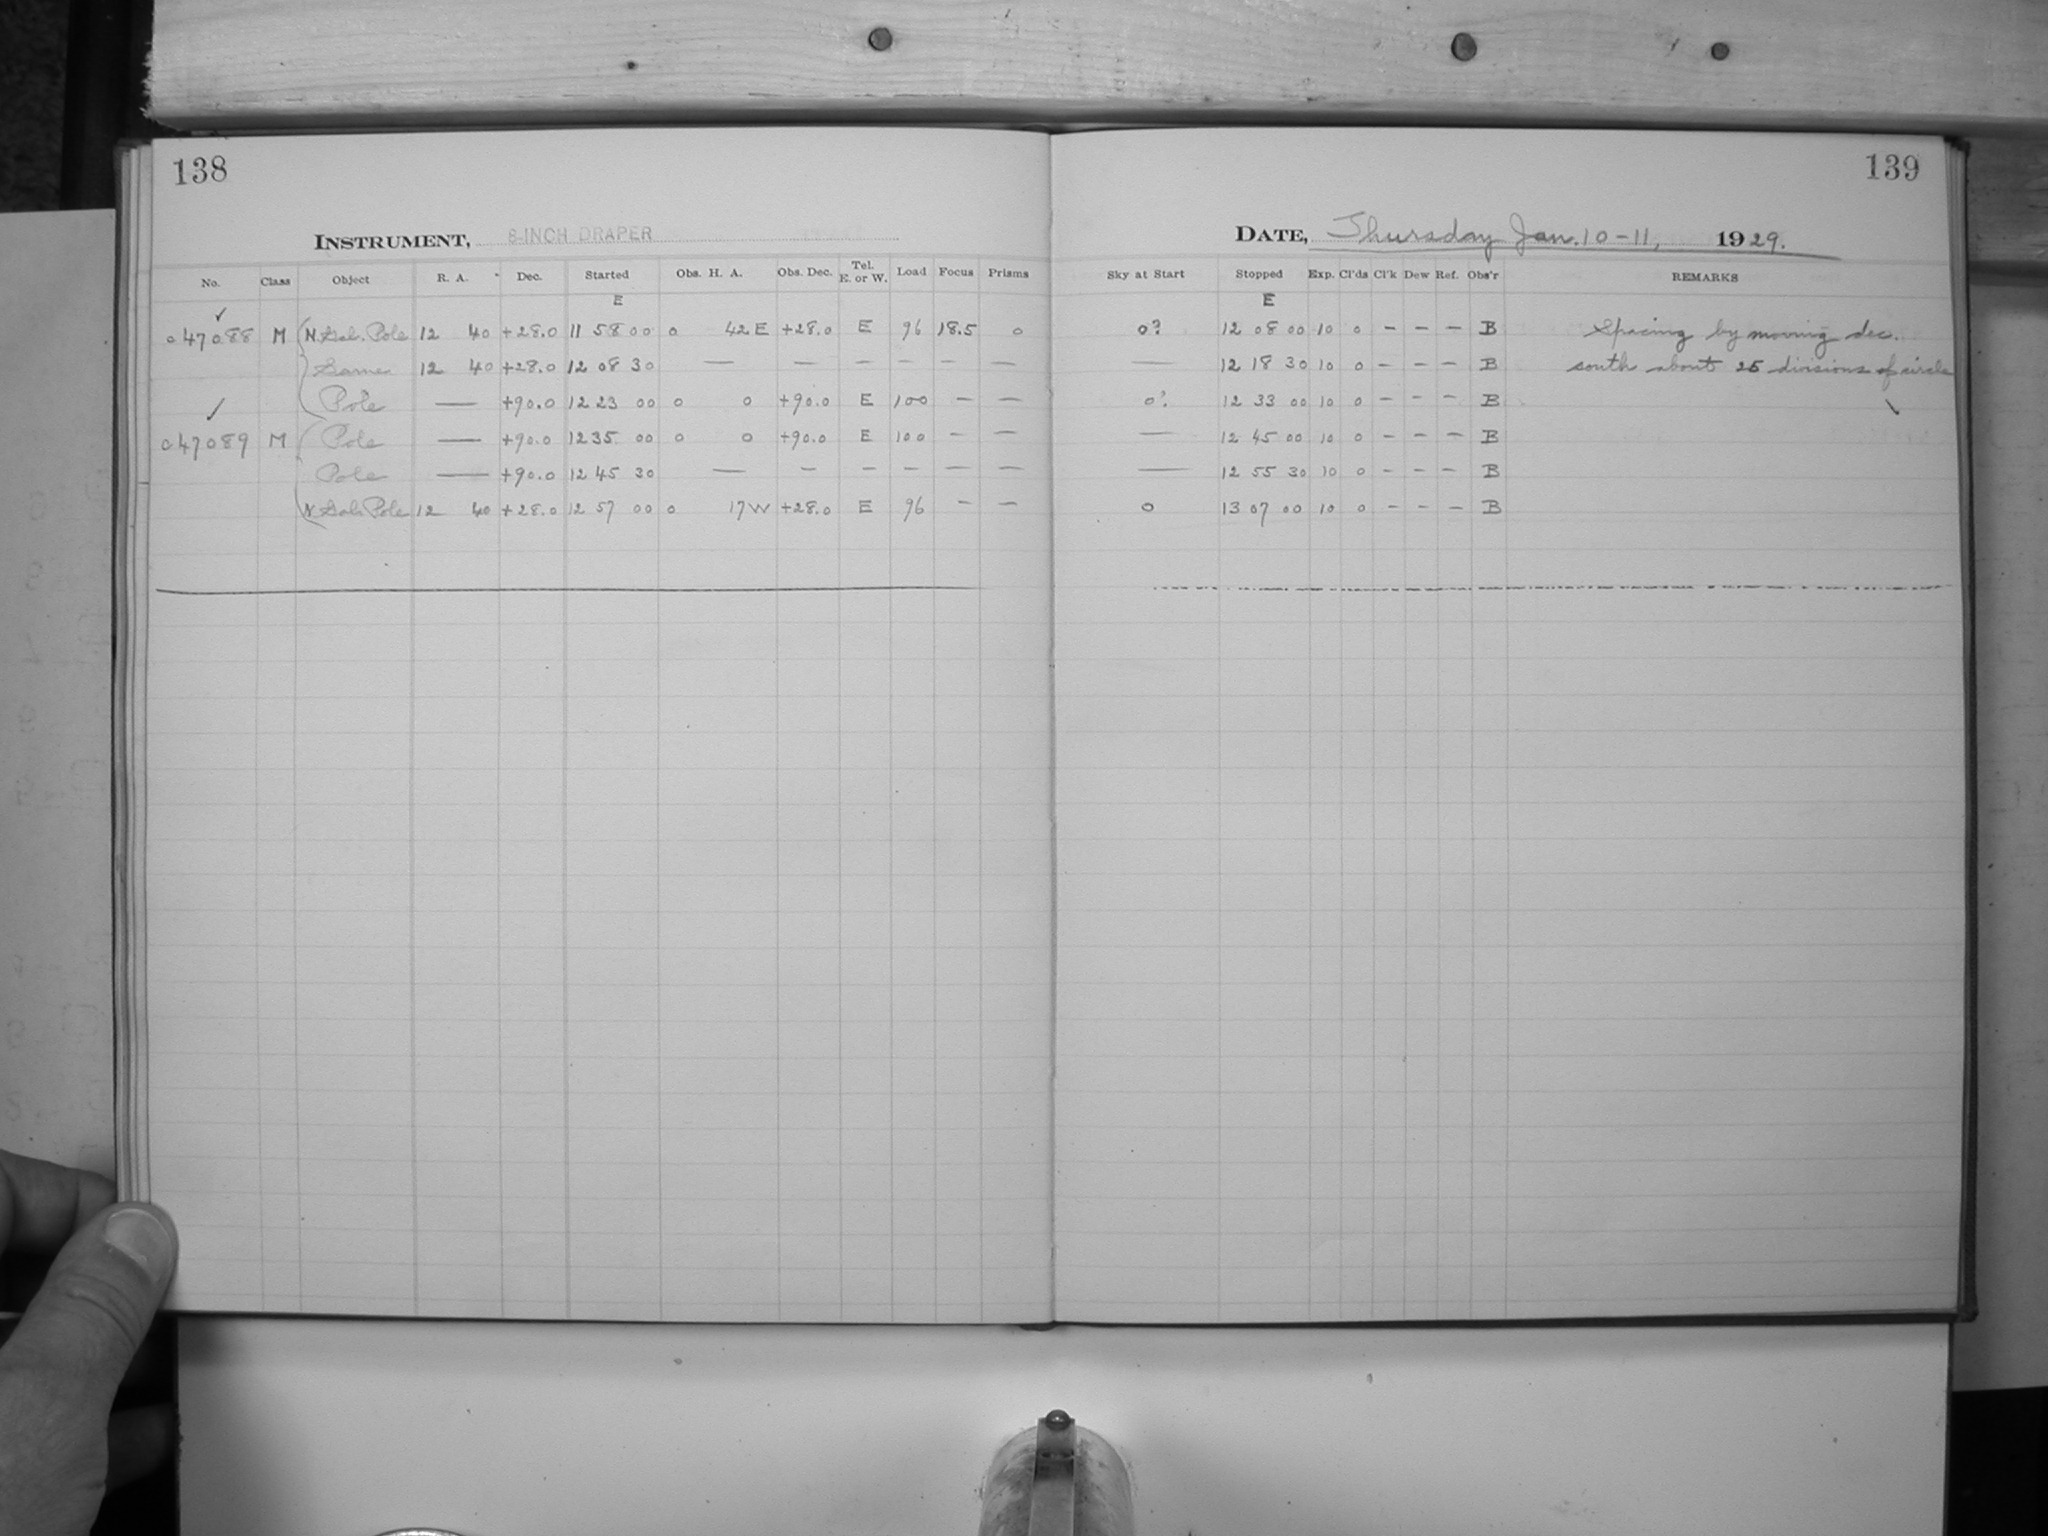 138
139
INSTRUMENT, 8-INCH DRAPER
DATE, Thursday Jan. 10-11, 1929.
No. Class Object R. A. Dec. Started Obs. H. A. Obs. Dec. Tel. E. or W. Load Focus Prisms Sky at Start Stopped Exp. Cl'ds Cl'k Dew Ref. Obs'r REMARKS
E E
✓
c47088 M N. Gal. Pole 12 40 +28.0 11 58 00 0 42 E +28.0 E 96 18.5 0 0? 12 08 00 10 0 – – – B Spacing by moving dec.
Same 12 40 +28.0 12 08 30 — — – – – — — 12 18 30 10 0 – – – B south about 25 divisions of circle
✓ Pole — +90.0 12 23 00 0 0 +90.0 E 100 – — 0? 12 33 00 10 0 – – – B
c47089 M Pole — +90.0 12 35 00 0 0 +90.0 E 100 – — — 12 45 00 10 0 – – – B
Pole — +90.0 12 45 30 — – – – – — — 12 55 30 10 0 – – – B
N. Gal. Pole 12 40 +28.0 12 57 00 0 17 W +28.0 E 96 – — 0 13 07 00 10 0 – – – B